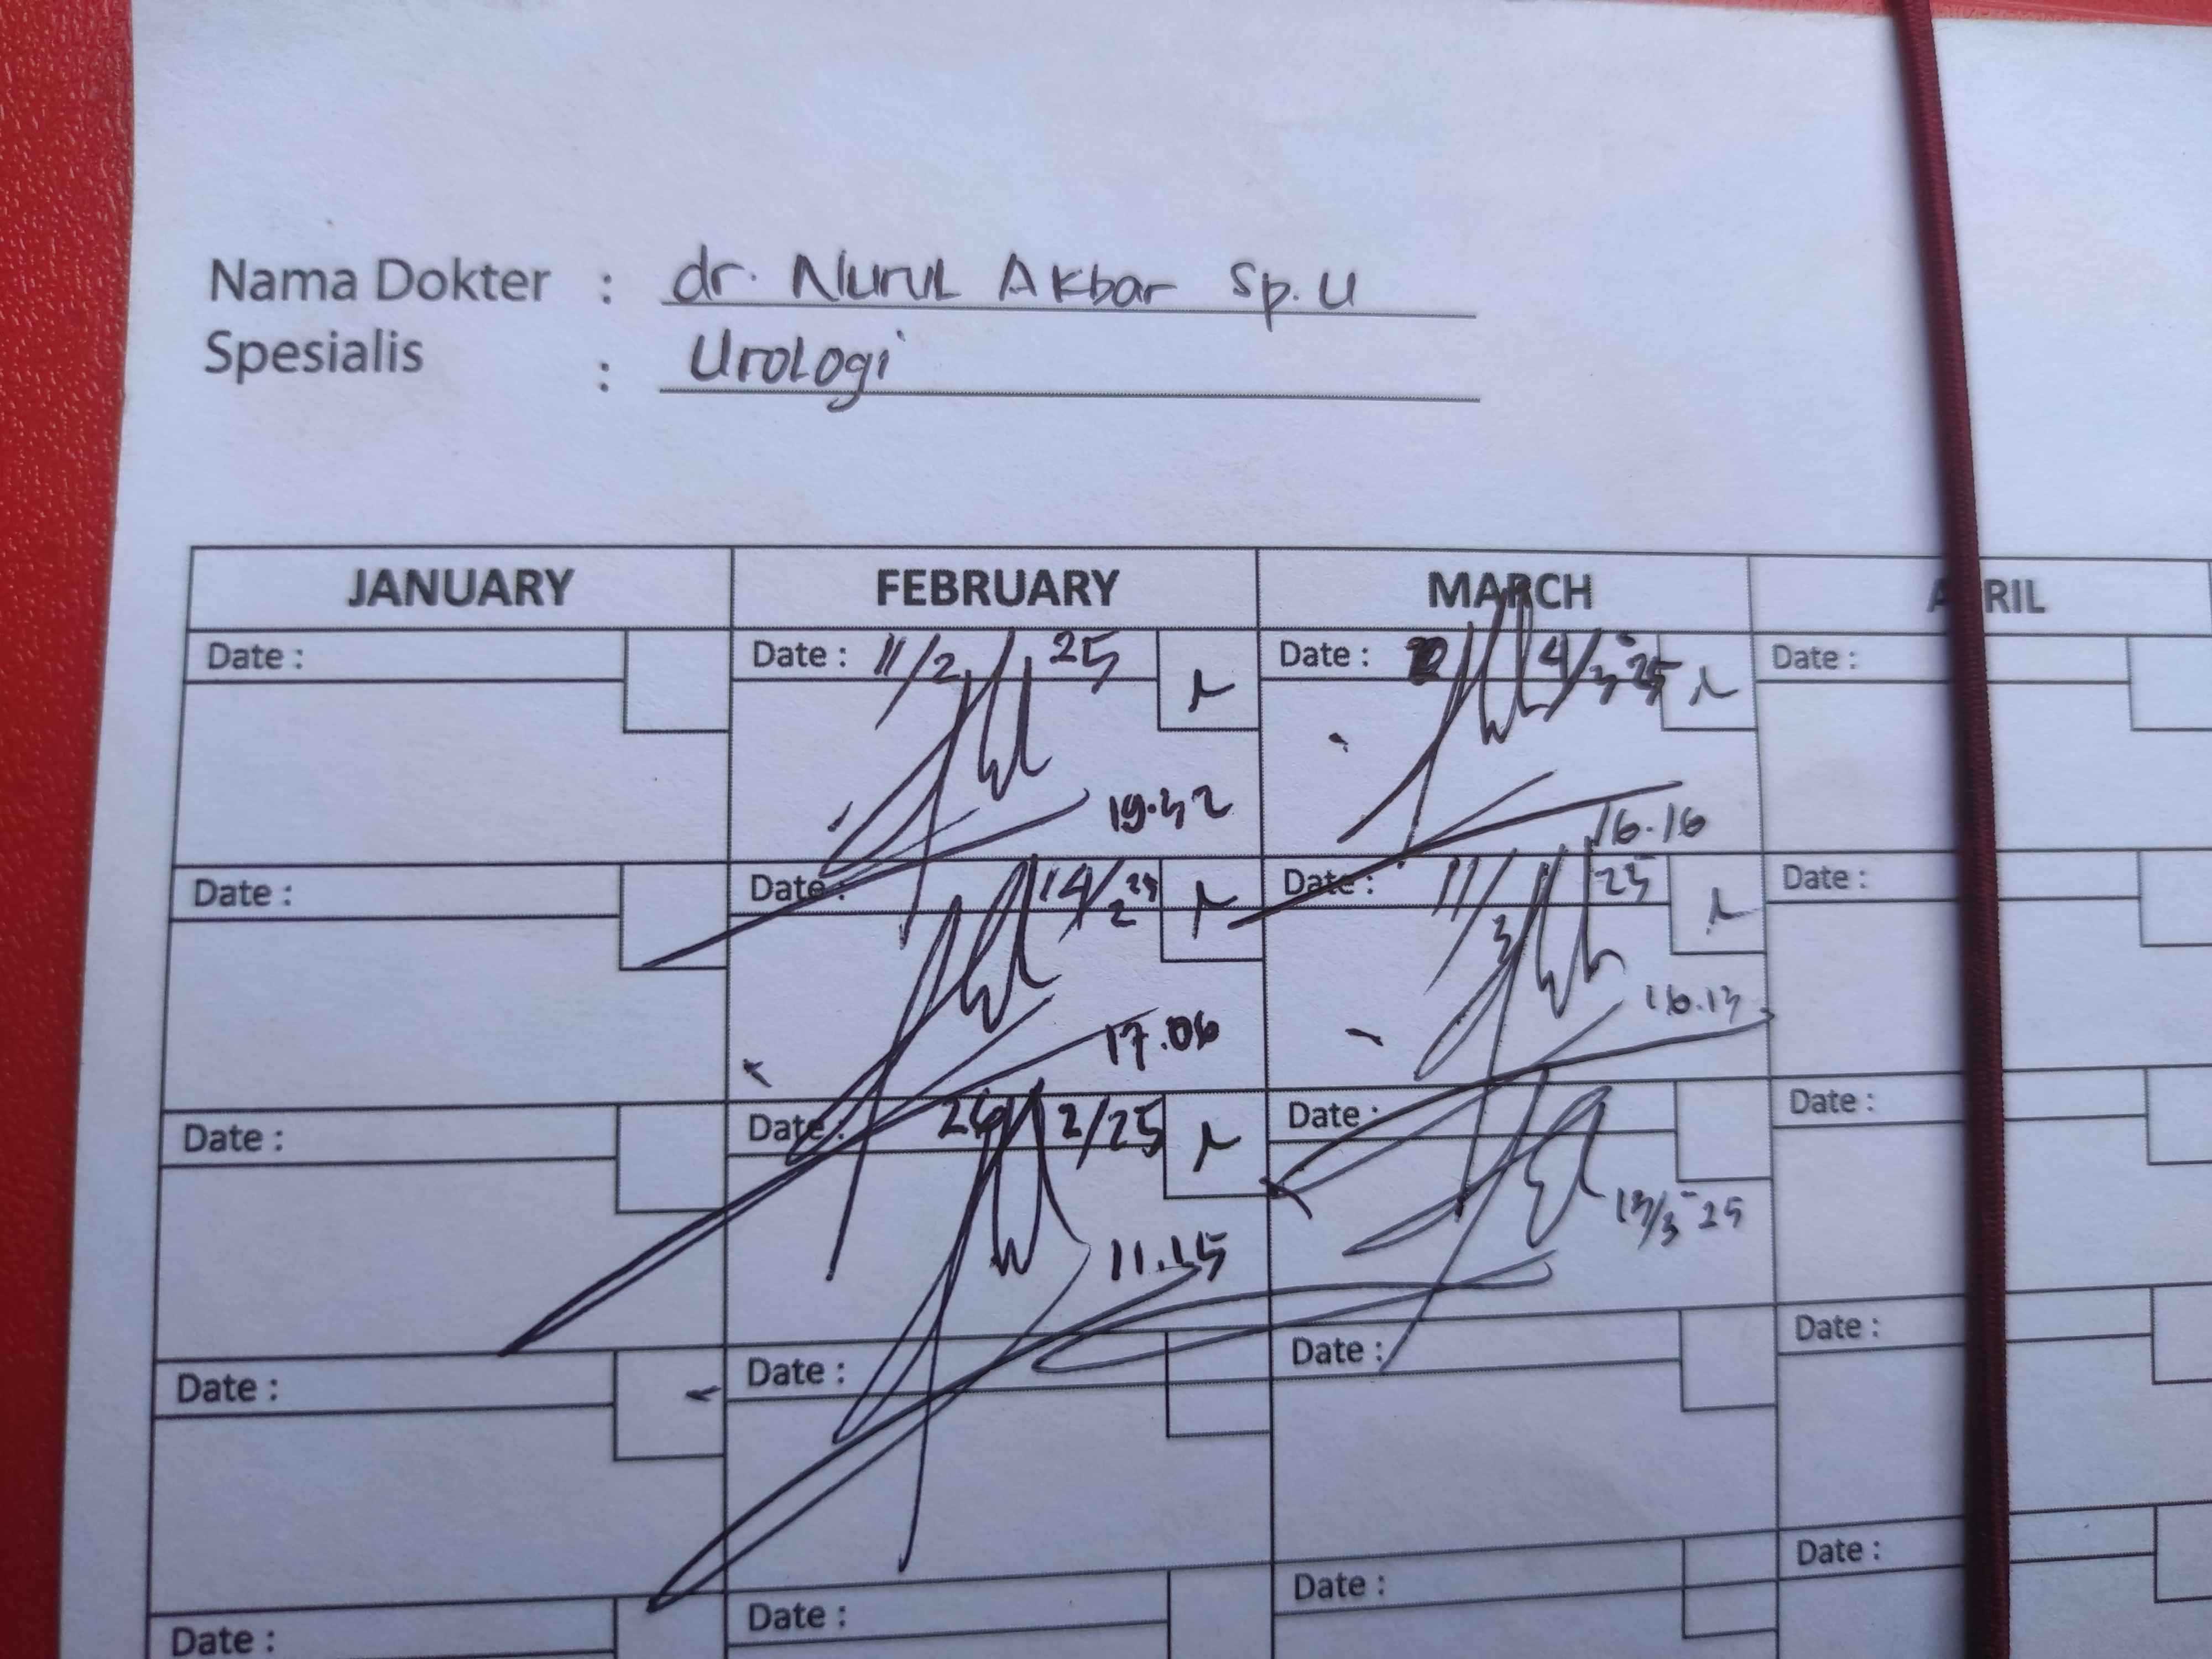 Nama Dokter : dr. Nurul Akbar Sp. U
Spesialis : Urologi
JANUARY FEBRUARY MARCH APRIL
Date : Date : 11/2 25 Date : 4/3-25 Date :
19.32 16.16
Date : Date : 14/2 25 Date : 11/3 25 Date :
17.06 16.13
Date : Date : 26 2/25 Date : Date :
11.15 13/3-25
Date : Date : Date : Date :
Date : Date : Date : Date :